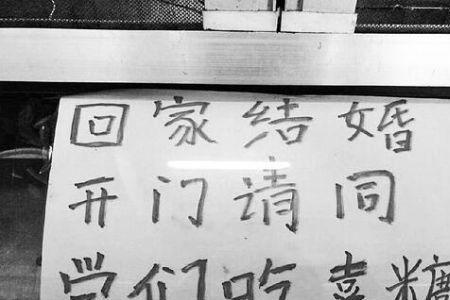 回家结婚
开门请同
学们吃喜糖